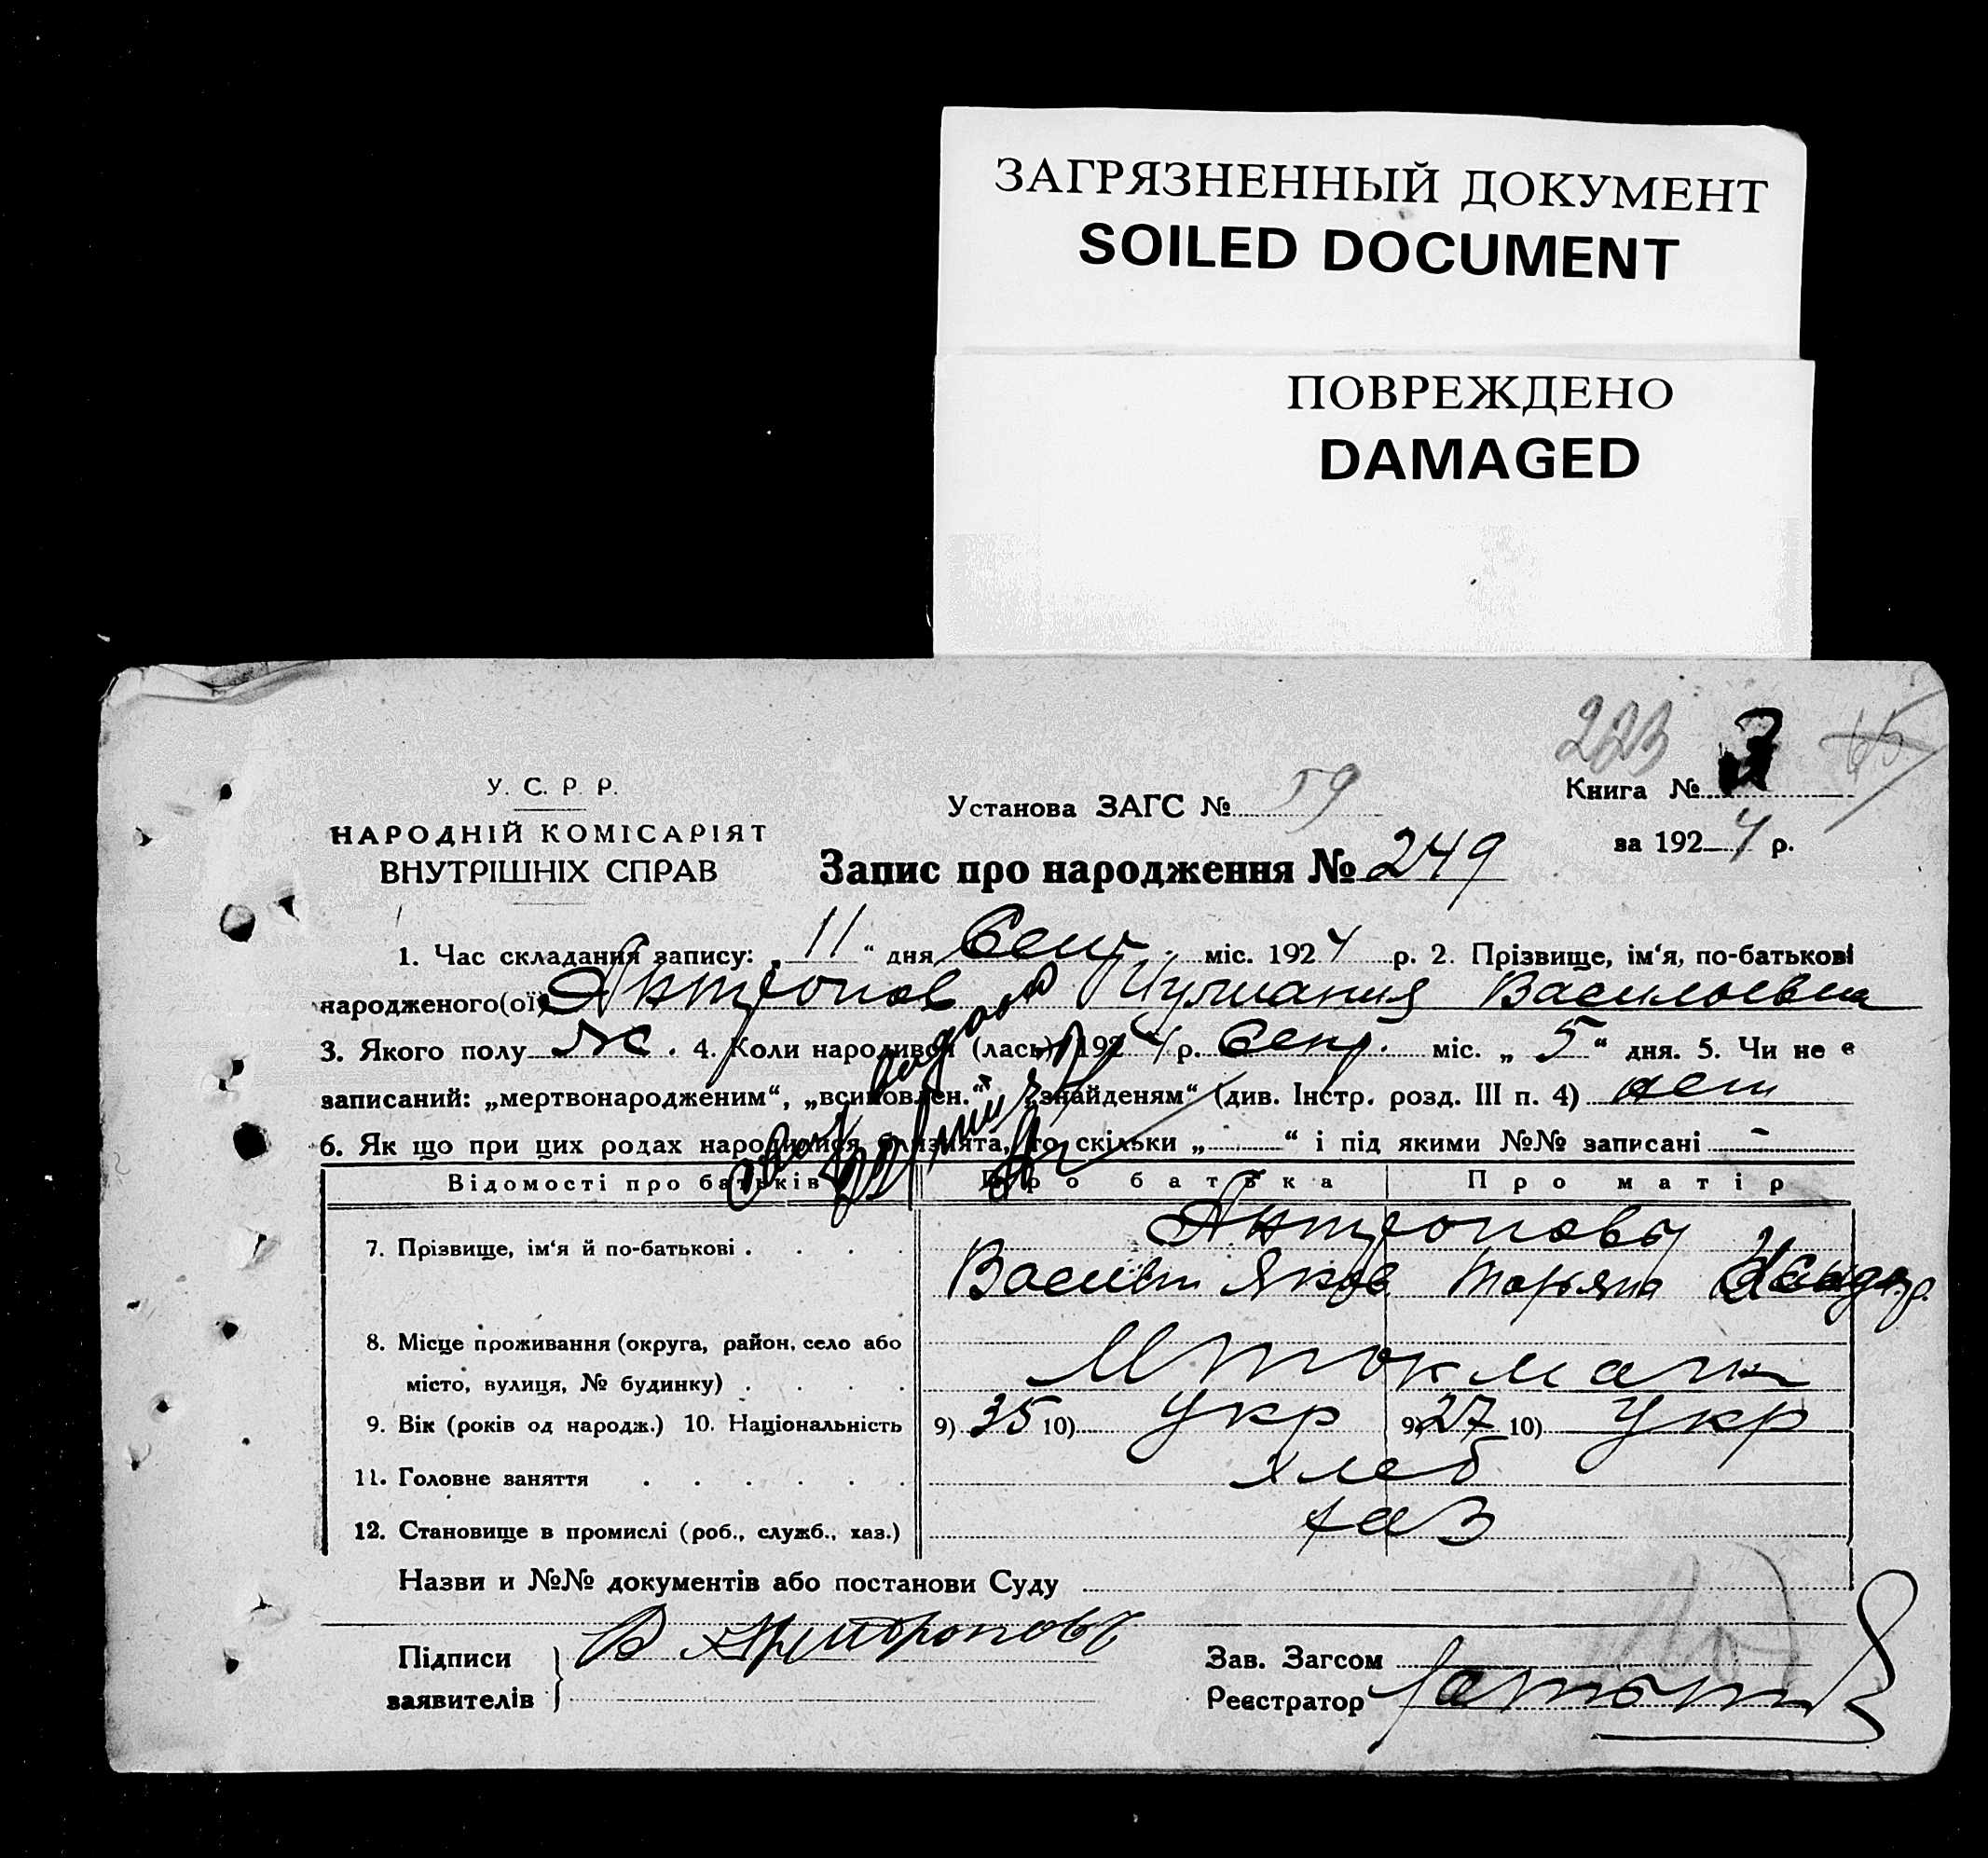 ЗАГРЯЗНЕННЫЙ ДОКУМЕНТ
SOILED DOCUMENT
ПОВРЕЖДЕНО
DAMAGED
223
У. С. Р. Р.
НАРОДНІЙ КОМІСАРІЯТ
ВНУТРІШНІХ СПРАВ
Установа ЗАГС № 59
Книга №
за 1924 р.
Запис про народження № 249
1. Час складання запису: „ 11 “ дня Сент міс. 1924 р. 2. Прізвище, ім‘я, по-батькові
народженого(ої) Антропова Васильевна
3. Якого полу ж. 4. Коли народився (лась) 1924 р. Сент. міс. „ 5 “ дня. 5. Чи не є
записаний: „мертвонародженим“, „всиновлен.“ „знайденям“ (див. Інстр. розд. III п. 4) нет
6. Як що при цих родах народилися близнята, то скільки „ “ і під якими №№ записані -
Відомості про батьків Про батька Про матір
7. Прізвище, ім‘я й по-батькові . . . . Антроповы
Василий Яков Марьяна
8. Місце проживання (округа, район, село або
місто, вулиця, № будинку) . . . . М токмачк
9. Вік (років од народж.) 10. Національність 9) 35 10) Укр 9) 27 10) Укр
11. Головне заняття . . . . . . хлеб
12. Становище в промислі (роб., служб., хаз.) хаз
Назви и №№ документів або постанови Суду
Підписи
заявителів
В Антроповъ
Зав. Загсом
Реєстратор